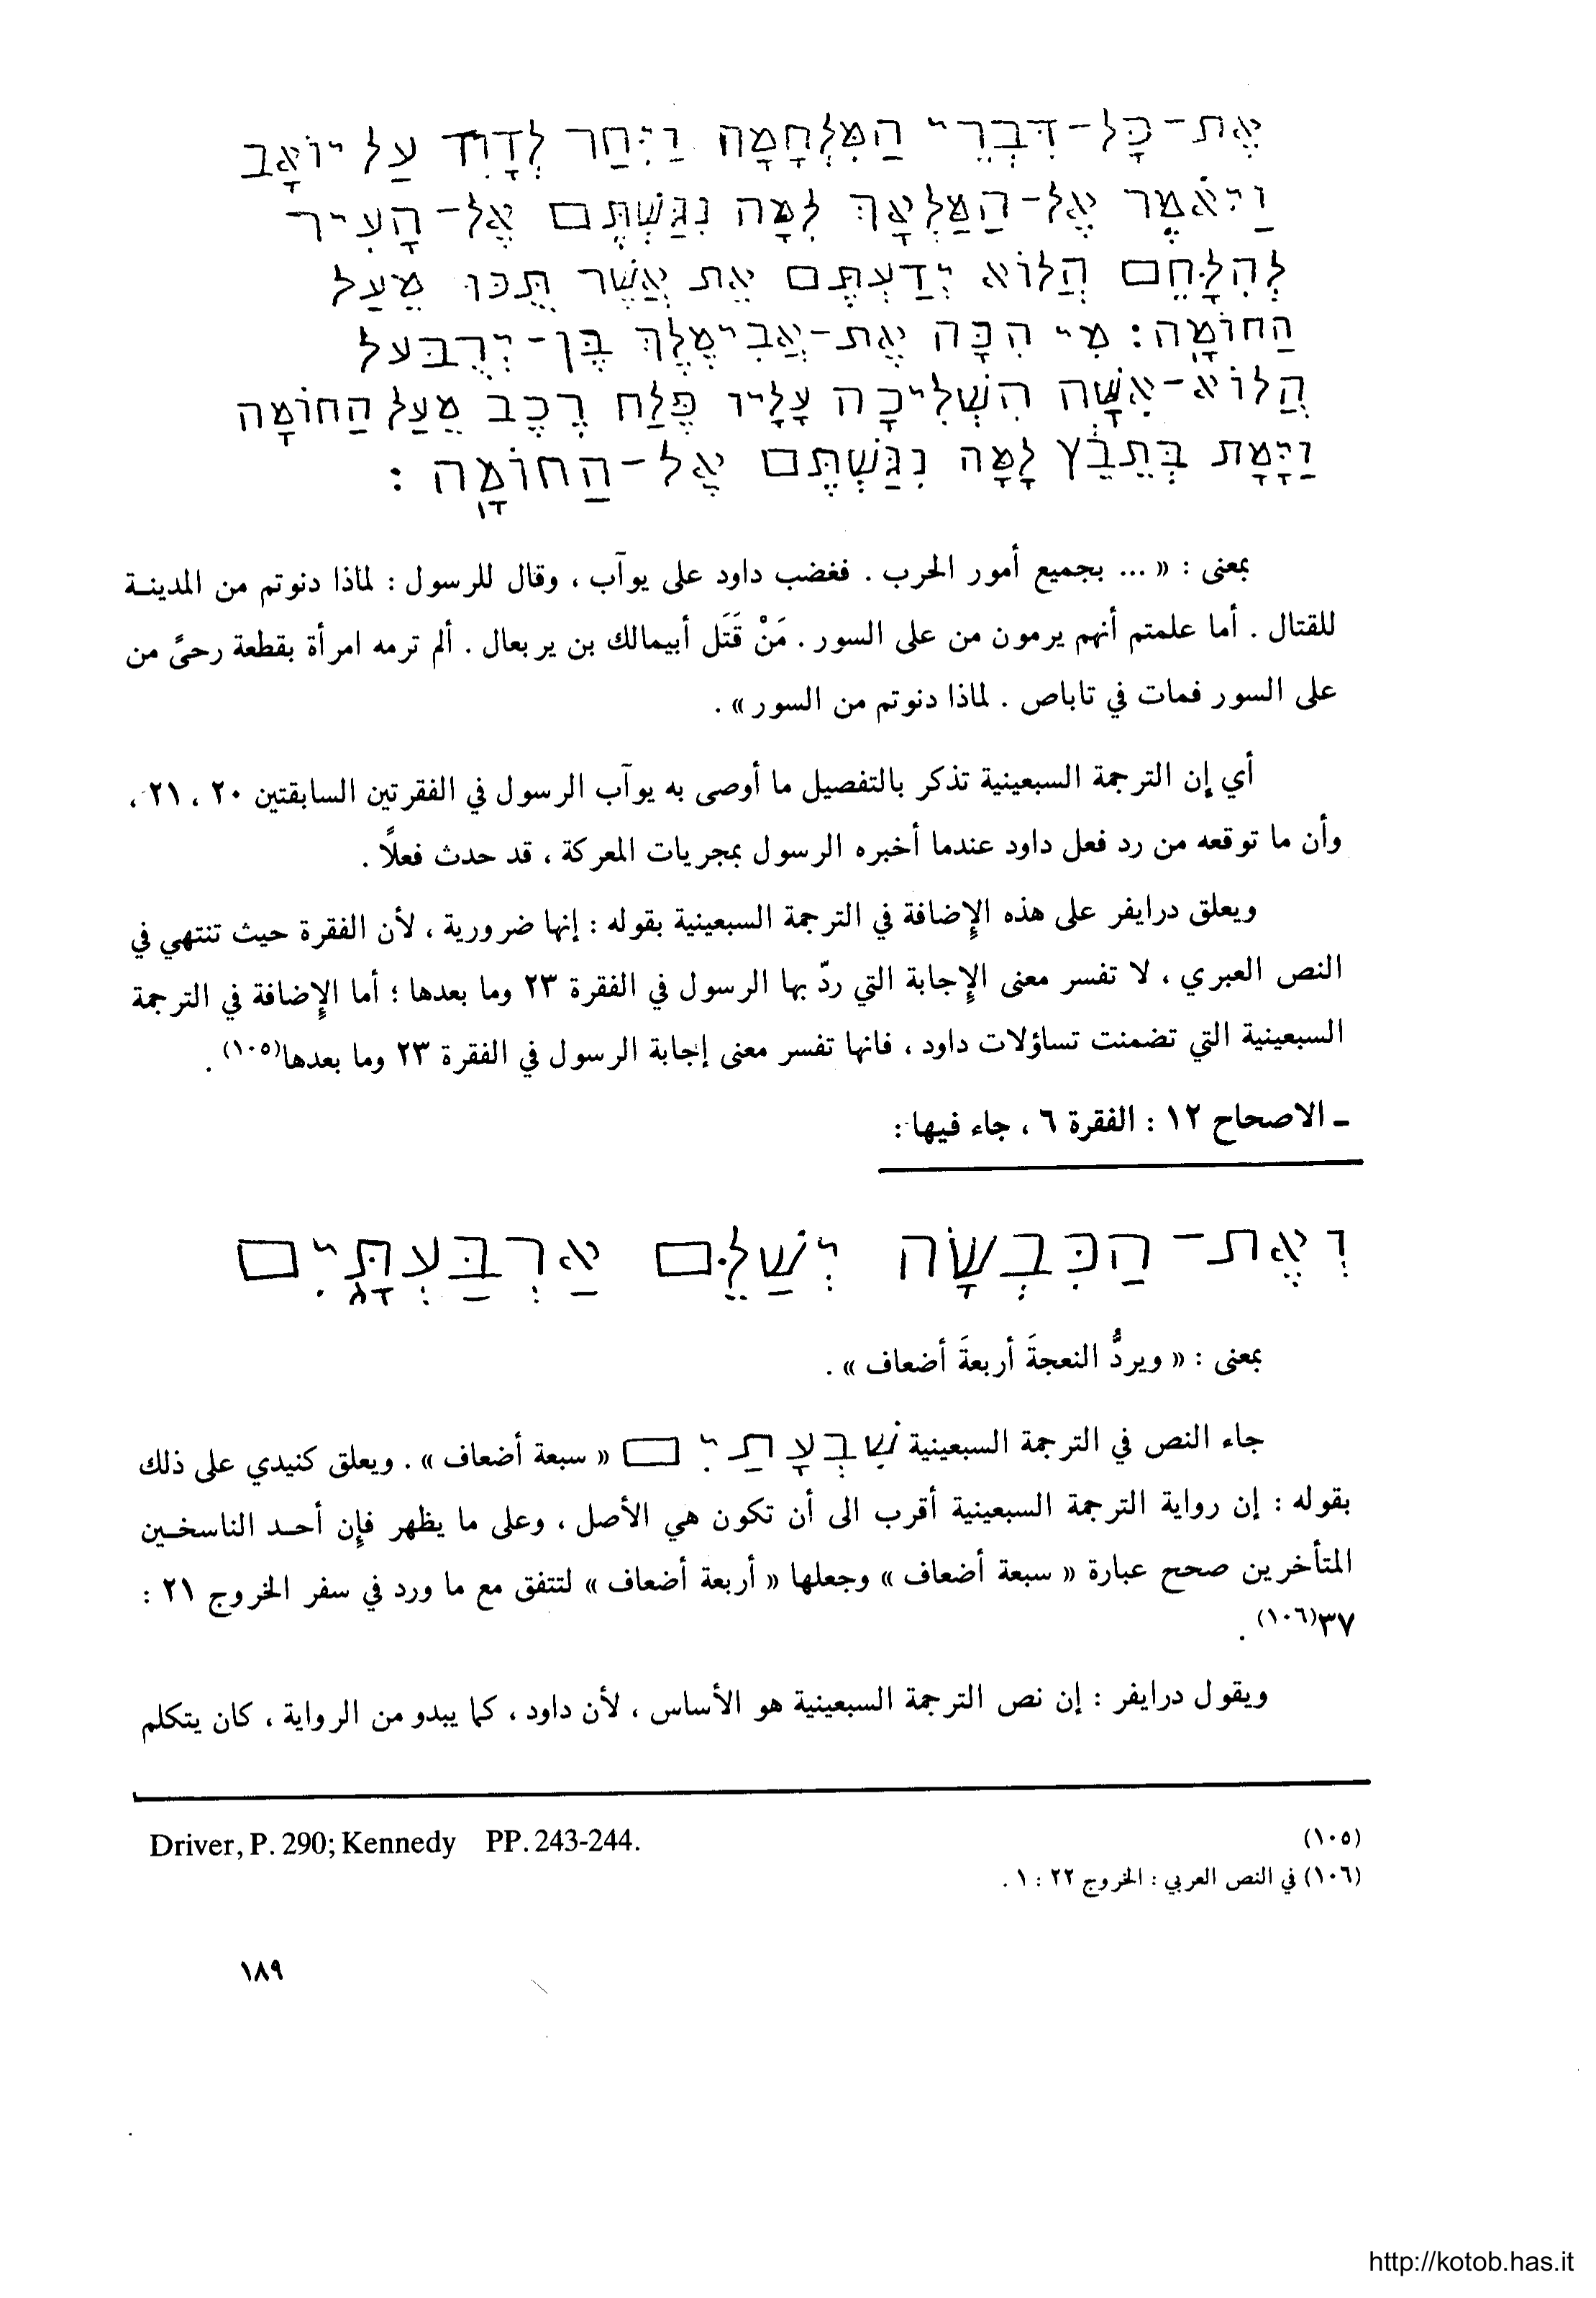 אֶת-כָּל-דִּבְרֵי הַמִּלְחָמָה וַיִּחַר לְדָוִד עַל יוֹאָב
וַיֹּאמֶר אֶל-הַמַּלְאָךְ לִמָּה נִגַּשְׁתֶּם אֶל-הָעִיר
לְהִלָּחֵם הֲלוֹא יְדַעְתֶּם אֵת אֲשֶׁר תֻּכּוּ מֵעַל
הַחוֹמָה: מִי הִכָּה אֶת-אֲבִימֶלֶךְ בֶּן-יְרֻבַּעל
הֲלוֹא-אִשָּׁה הִשְׁלִיכָה עָלָיו פֶּלַח רֶכֶב מֵעַל הַחוֹמָה
וַיָּמָת בְּתֵבֵץ לָמָּה נִגַּשְׁתֶּם אֶל-הַחוֹמָה :
بمعنى : « ... بجميع أمور الحرب . فغضب داود على يوآب ، وقال للرسول : لماذا دنوتم من المدينة
للقتال . أما علمتم أنهم يرمون من على السور . مَنْ قَتَل أبيمالك بن يربعال . ألم ترمه امرأة بقطعة رحىً من
على السور فمات في تاباص . لماذا دنوتم من السور » .
أي إن الترجمة السبعينية تذكر بالتفصيل ما أوصى به يوآب الرسول في الفقرتين السابقتين ٢٠ ، ٢١ ،
وأن ما توقعه من رد فعل داود عندما أخبره الرسول بمجريات المعركة ، قد حدث فعلاً .
ويعلق درايفر على هذه الإضافة في الترجمة السبعينية بقوله : إنها ضرورية ، لأن الفقرة حيث تنتهي في
النص العبري ، لا تفسر معنى الإجابة التي ردّ بها الرسول في الفقرة ٢٣ وما بعدها ؛ أما الإضافة في الترجمة
السبعينية التي تضمنت تساؤلات داود ، فانها تفسر معنى إجابة الرسول في الفقرة ٢٣ وما بعدها(١٠٥) .
ـ الاصحاح ١٢ : الفقرة ٦ ، جاء فيها :
וְאֶת-הַכִּבְשָׂה יְשַׁלֵּם אַרְבַּעְתָּיִם
بمعنى : « ويردُّ النعجةَ أربعةَ أضعاف » .
جاء النص في الترجمة السبعينية שִׁבְעָתַיִם « سبعة أضعاف » . ويعلق كنيدي على ذلك
بقوله : إن رواية الترجمة السبعينية أقرب الى أن تكون هي الأصل ، وعلى ما يظهر فإن أحد الناسخين
المتأخرين صحح عبارة « سبعة أضعاف » وجعلها « أربعة أضعاف » لتتفق مع ما ورد في سفر الخروج ٢١ :
٣٧(١٠٦) .
ويقول درايفر : إن نص الترجمة السبعينية هو الأساس ، لأن داود ، كما يبدو من الرواية ، كان يتكلم
(١٠٥) Driver, P. 290; Kennedy PP. 243-244.
(١٠٦) في النص العربي : الخروج ٢٢ : ١ .
١٨٩
http://kotob.has.it